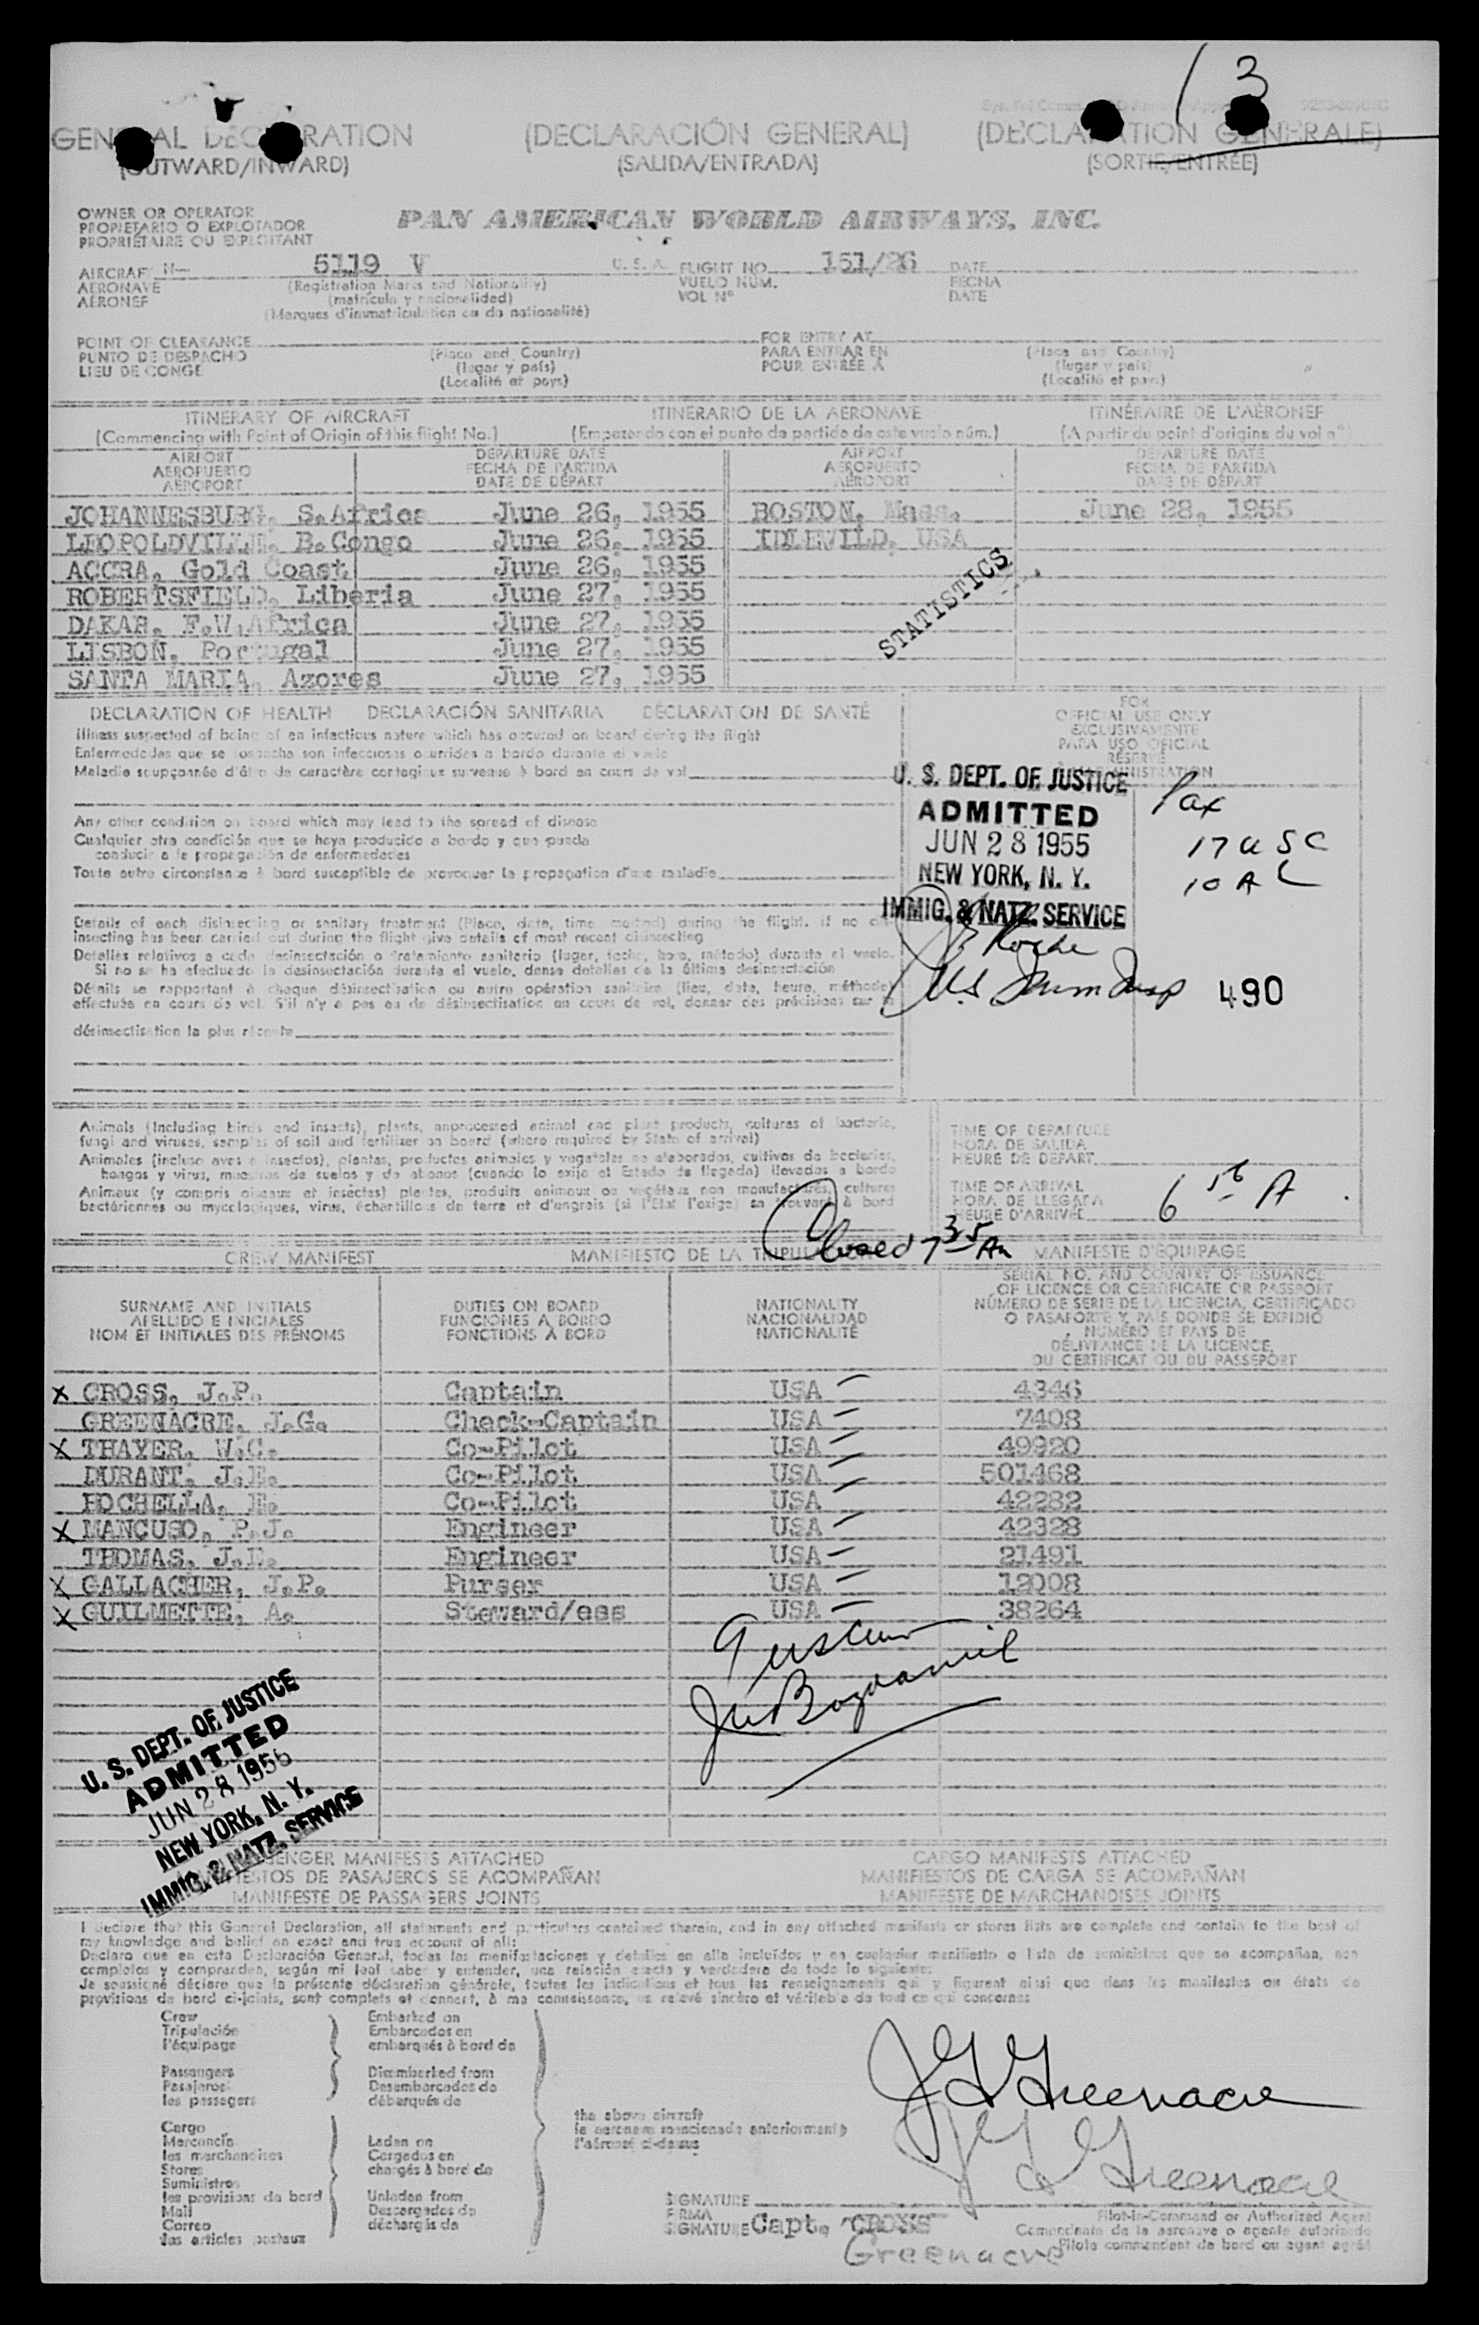 3
GENERAL DECLARATION (DECLARACIÓN GENERAL) (DÉCLARATION GÉNÉRALE)
(OUTWARD/INWARD) (SALIDA/ENTRADA) (SORTIE/ENTRÉE)
OWNER OR OPERATOR
PROPIETARIO O EXPLOTADOR
PROPRIÉTAIRE OU EXPLOITANT
PAN AMERICAN WORLD AIRWAYS, INC.
AIRCRAFT N- 5119 V U. S. A. FLIGHT NO. 151/26 DATE
AERONAVE (Registration Marks and Nationality) VUELO NÚM. FECHA
AÉRONEF (matrícula y nacionalidad) VOL Nº DATE
(Marques d'immatriculation ou de nationalité)
POINT OF CLEARANCE FOR ENTRY AT
PUNTO DE DESPACHO (Place and Country) PARA ENTRAR EN (Place and Country)
LIEU DE CONGÉ (lugar y país) POUR ENTRÉE À (lugar y país)
(Localité et pays) (Localité et pays)
ITINERARY OF AIRCRAFT ITINERARIO DE LA AERONAVE ITINÉRAIRE DE L'AÉRONEF
(Commencing with Point of Origin of this flight No.) (Empezando con el punto de partida de este vuelo núm.) (A partir du point d'origine du vol nº)
AIRPORT DEPARTURE DATE AIRPORT DEPARTURE DATE
AEROPUERTO FECHA DE PARTIDA AEROPUERTO FECHA DE PARTIDA
AÉROPORT DATE DE DÉPART AÉROPORT DATE DE DÉPART
JOHANNESBURG, S.Africa June 26, 1955 BOSTON, Mass. June 28, 1955
LEOPOLDVILLE, B.Congo June 26, 1955 IDLEWILD, USA
ACCRA, Gold Coast June 26, 1955
ROBERTSFIELD, Liberia June 27, 1955
DAKAR, F.W.Africa June 27, 1955
LISBON, Portugal June 27, 1955
SANTA MARIA, Azores June 27, 1955
STATISTICS
DECLARATION OF HEALTH DECLARACIÓN SANITARIA DÉCLARATION DE SANTÉ
Illness suspected of being of an infectious nature which has occured on board during the flight
Enfermedades que se sospecha son infecciosas ocurridas a bordo durante el vuelo
Maladie soupçonnée d'être de caractère contagieux survenue à bord en cours de vol
Any other condition on board which may lead to the spread of disease
Cualquier otra condición que se haya producido a bordo y que pueda
conducir a la propagación de enfermedades
Toute autre circonstance à bord susceptible de provoquer la propagation d'une maladie
Details of each disinsecting or sanitary treatment (Place, date, time, method) during the flight. If no dis-
insecting has been carried out during the flight give details of most recent disinsecting
Detalles relativos a cada desinsectación o tratamiento sanitario (lugar, fecha, hora, método) durante el vuelo.
Si no se ha efectuado la desinsectación durante el vuelo, dense detalles de la última desinsectación
Détails se rapportant à chaque désinsectisation ou autre opération sanitaire (lieu, date, heure, méthode)
effectuée en cours de vol. S'il n'y a pas eu de désinsectisation en cours de vol, donner des précisions sur la
désinsectisation la plus récente
FOR
OFFICIAL USE ONLY
EXCLUSIVAMENTE
PARA USO OFICIAL
RÉSERVÉ
ADMINISTRATION
U. S. DEPT. OF JUSTICE
ADMITTED
JUN 28 1955
NEW YORK, N. Y.
IMMIG. & NATZ. SERVICE
Pax
17 USC
10 A L
Roche
US Imm Insp
490
Animals (Including birds and insects), plants, unprocessed animal and plant products, cultures of bacteria,
fungi and viruses, samples of soil and fertilizer on board (where required by State of arrival)
Animales (incluso aves e insectos), plantas, productos animales y vegetales no elaborados, cultivos de bacterias,
hongos y virus, muestras de suelos y de abonos (cuando lo exija el Estado de llegada) llevados a bordo
Animaux (y compris oiseaux et insectes) plantes, produits animaux ou végétaux non manufacturés, cultures
bactériennes ou mycologiques, virus, échantillons de terre et d'engrais (si l'État l'exige) se trouvant à bord
TIME OF DEPARTURE
HORA DE SALIDA
HEURE DE DÉPART
TIME OF ARRIVAL
HORA DE LLEGADA
HEURE D'ARRIVÉE
6 A
Closed 7 35 Am
CREW MANIFEST MANIFIESTO DE LA TRIPULACIÓN MANIFESTE D'EQUIPAGE
SURNAME AND INITIALS
APELLIDO E INICIALES
NOM ET INITIALES DES PRÉNOMS
DUTIES ON BOARD
FUNCIONES A BORDO
FONCTIONS À BORD
NATIONALITY
NACIONALIDAD
NATIONALITÉ
SERIAL NO. AND COUNTRY OF ISSUANCE
OF LICENCE OR CERTIFICATE OR PASSPORT
NÚMERO DE SERIE DE LA LICENCIA, CERTIFICADO
O PASAPORTE Y PAÍS DONDE SE EXPIDIÓ
NUMÉRO ET PAYS DE
DÉLIVRANCE DE LA LICENCE,
OU CERTIFICAT OU DU PASSEPORT
x CROSS, J.P. Captain USA 4346
GREENACRE, J.G. Check-Captain USA 7408
x THAYER, W.C. Co-Pilot USA 49920
DURANT, J.E. Co-Pilot USA 501468
ROCHELLA, E. Co-Pilot USA 42282
x MANCUSO, P.J. Engineer USA 42328
THOMAS, J.D. Engineer USA 21491
x GALLACHER, J.P. Purser USA 12008
x GUILMETTE, A. Steward/ess USA 38264
U. S. DEPT. OF JUSTICE
ADMITTED
JUN 28 1955
NEW YORK, N. Y.
IMMIG. & NATZ. SERVICE
PASSENGER MANIFESTS ATTACHED CARGO MANIFESTS ATTACHED
MANIFIESTOS DE PASAJEROS SE ACOMPAÑAN MANIFIESTOS DE CARGA SE ACOMPAÑAN
MANIFESTE DE PASSAGERS JOINTS MANIFESTE DE MARCHANDISES JOINTS
I declare that this General Declaration, all statements and particulars contained therein, and in any attached manifests or stores lists are complete and contain to the best of
my knowledge and belief an exact and true account of all:
Declaro que en esta Declaración General, todas las manifestaciones y detalles en ella incluídos y en cualquier manifiesto o lista de suministros que se acompañan, son
completos y comprenden, según mi leal saber y entender, una relación exacta y verdadera de todo lo siguiente:
Je soussigné déclare que la présente déclaration générale, toutes les indications et tous les renseignements qui y figurent ainsi que dans les manifestes ou états de
provisions de bord ci-joints, sont complets et donnent, à ma connaissance, un relevé sincère et véritable de tout ce qui concerne:
Crew
Tripulación
l'équipage
Passengers
Pasajeros
les passagers
Cargo
Mercancía
les marchandises
Stores
Suministros
les provisions de bord
Mail
Correo
les articles postaux
Embarked on
Embarcados en
embarqués à bord de
Disembarked from
Desembarcados de
débarqués de
Laden on
Cargados en
chargés à bord de
Unladen from
Descargados de
déchargés de
the above aircraft
la aeronave mencionada anteriormente
l'aéronef ci-dessus
J G Greenacre
J G Greenacre
SIGNATURE
FIRMA
SIGNATURE Capt. CROSS
Greenacre
Pilot-in-Command or Authorized Agent
Comandante de la aeronave o agente autorizado
Pilote commandant de bord ou agent agréé